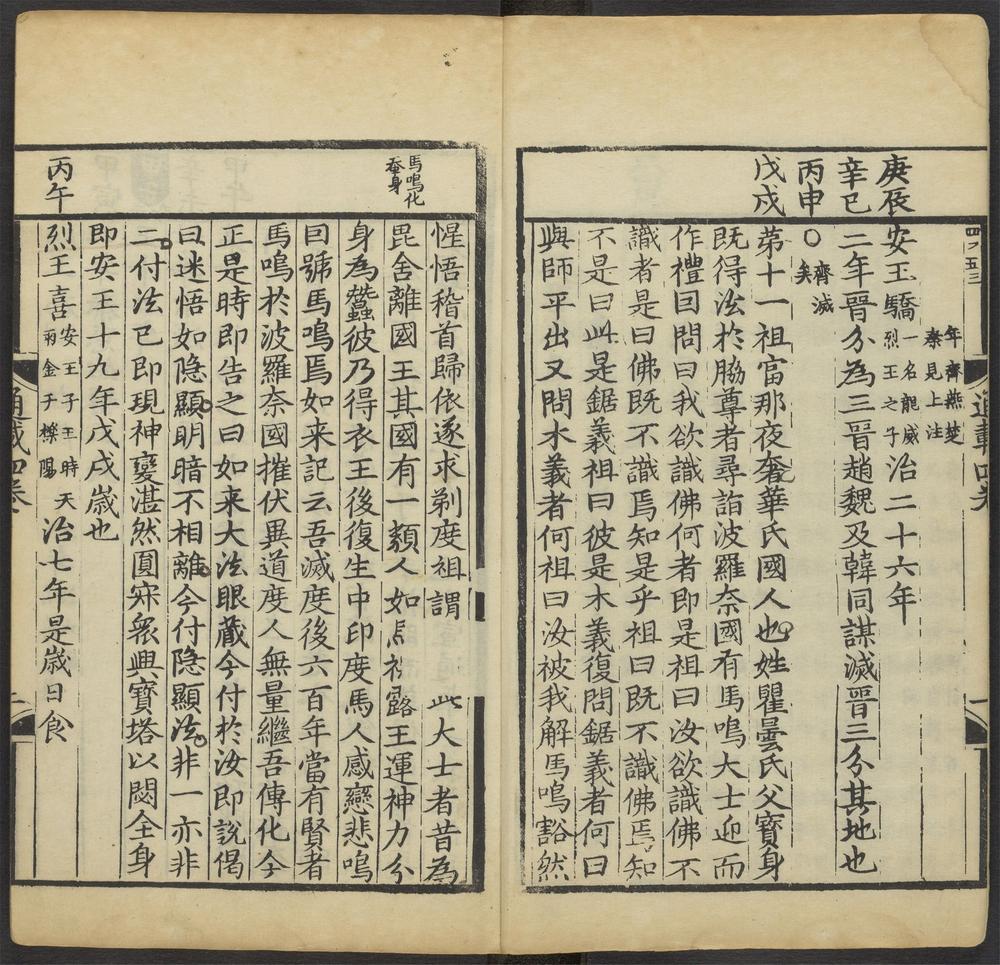 庚辰
辛巳
丙申
戊戌
安王驕一名龍威烈王之子治二十六年
年齊燕楚秦見上注
二年晉分為三晉趙魏及韓同謀滅晉三分其地也
〇齊滅矣
第十一祖富那夜奢華氏國人也姓瞿曇氏父寶身
既得法於脇尊者尋詣波羅奈國有馬鳴大士迎而
作禮囙問曰我欲識佛何者即是祖曰汝欲識佛不
識者是曰佛既不識焉知是乎祖曰既不識佛焉知
不是曰此是鋸義祖曰彼是木義復問鋸義者何曰
與師平出又問木義者何祖曰汝被我解馬鳴豁然
馬鳴化蚕身
丙午
惺悟稽首歸依逐求剃度祖謂 此大士者昔為
毘舍離國王其國有一類人如馬裸露王運神力分
身為蠶彼乃得衣王後復生中印度馬人感戀悲鳴
囙號馬鳴焉如来記云吾滅度後六百年當有賢者
馬鳴於波羅奈國摧伏異道度人無量繼吾傳化今
正是時即告之曰如来大法眼藏今付於汝即說偈
曰迷悟如隐顯明暗不相離今付隐顯法非一亦非
二付法已即現神變湛然圓寂衆興寶塔以閟全身
即安王十九年戊戌歲也
烈王喜安王子王時雨金子櫟陽天治七年是歲日食
通載四卷